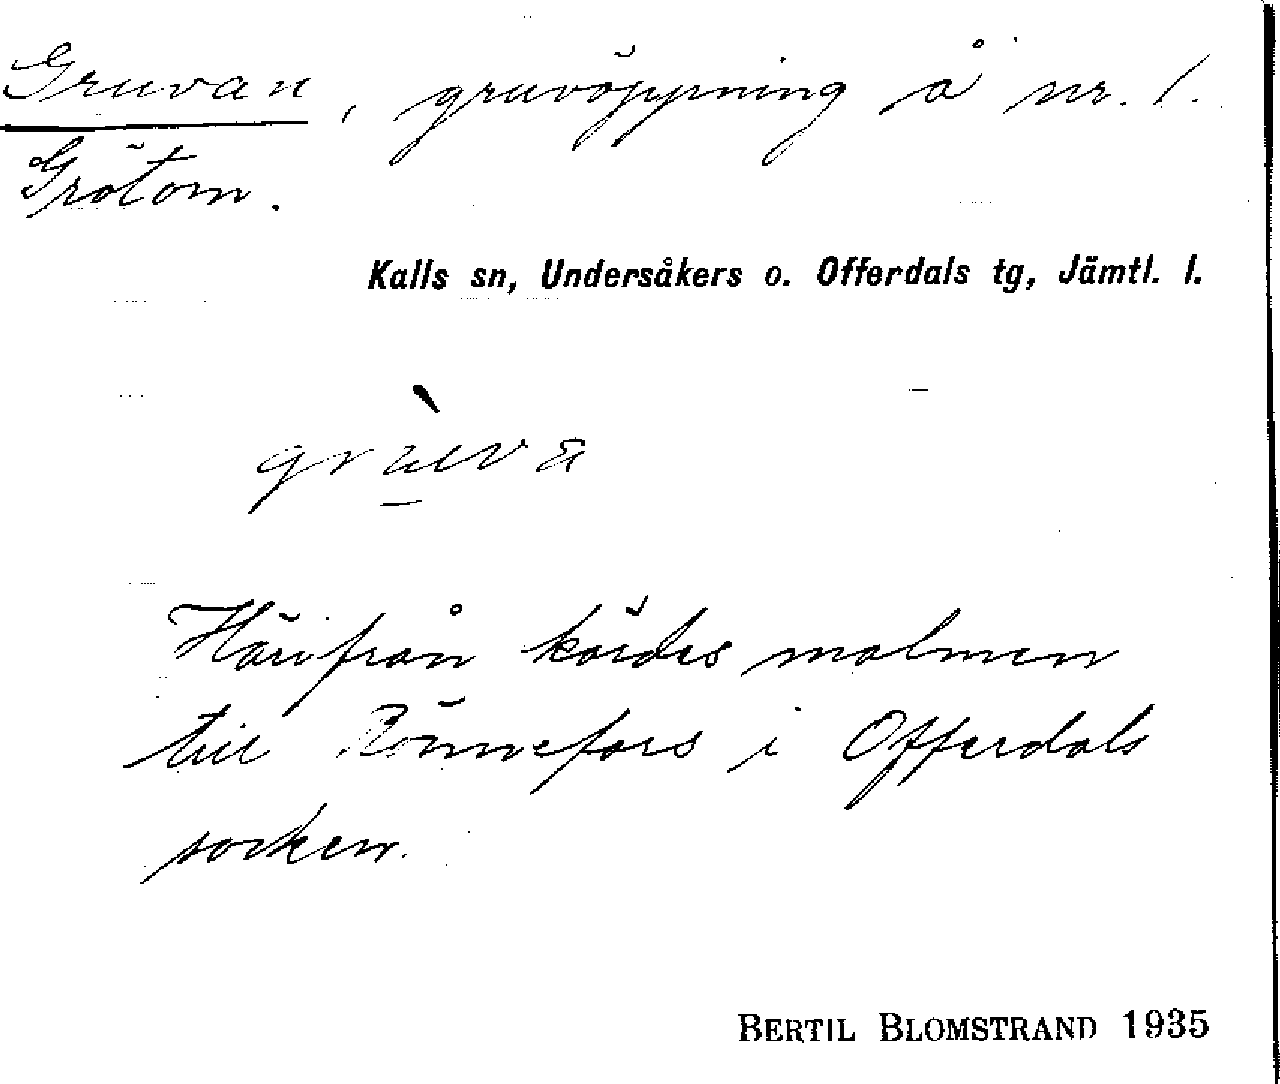 Gruvan, gruvöppning å nr. 1.
Grötom.
Kalls sn, Undersåkers o. Offerdals tg, Jämtl. l.
grùva
Härifrån kördes malmen
till Rönnefors i Offerdals
socken.
BERTIL BLOMSTRAND 1935